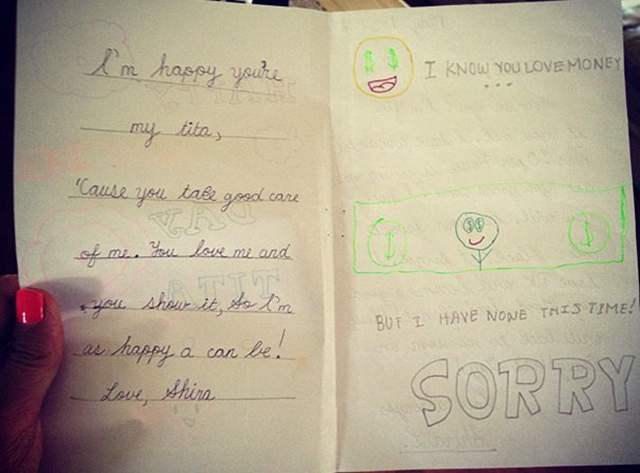 I'm happy you're
my tita,
'Cause you take good care
of me. You love me and
you show it, So I'm
as happy a can be!
Love, Shira
$ $
I KNOW YOU LOVE MONEY
...
$ $ $ $
BUT I HAVE NONE THIS TIME!
SORRY